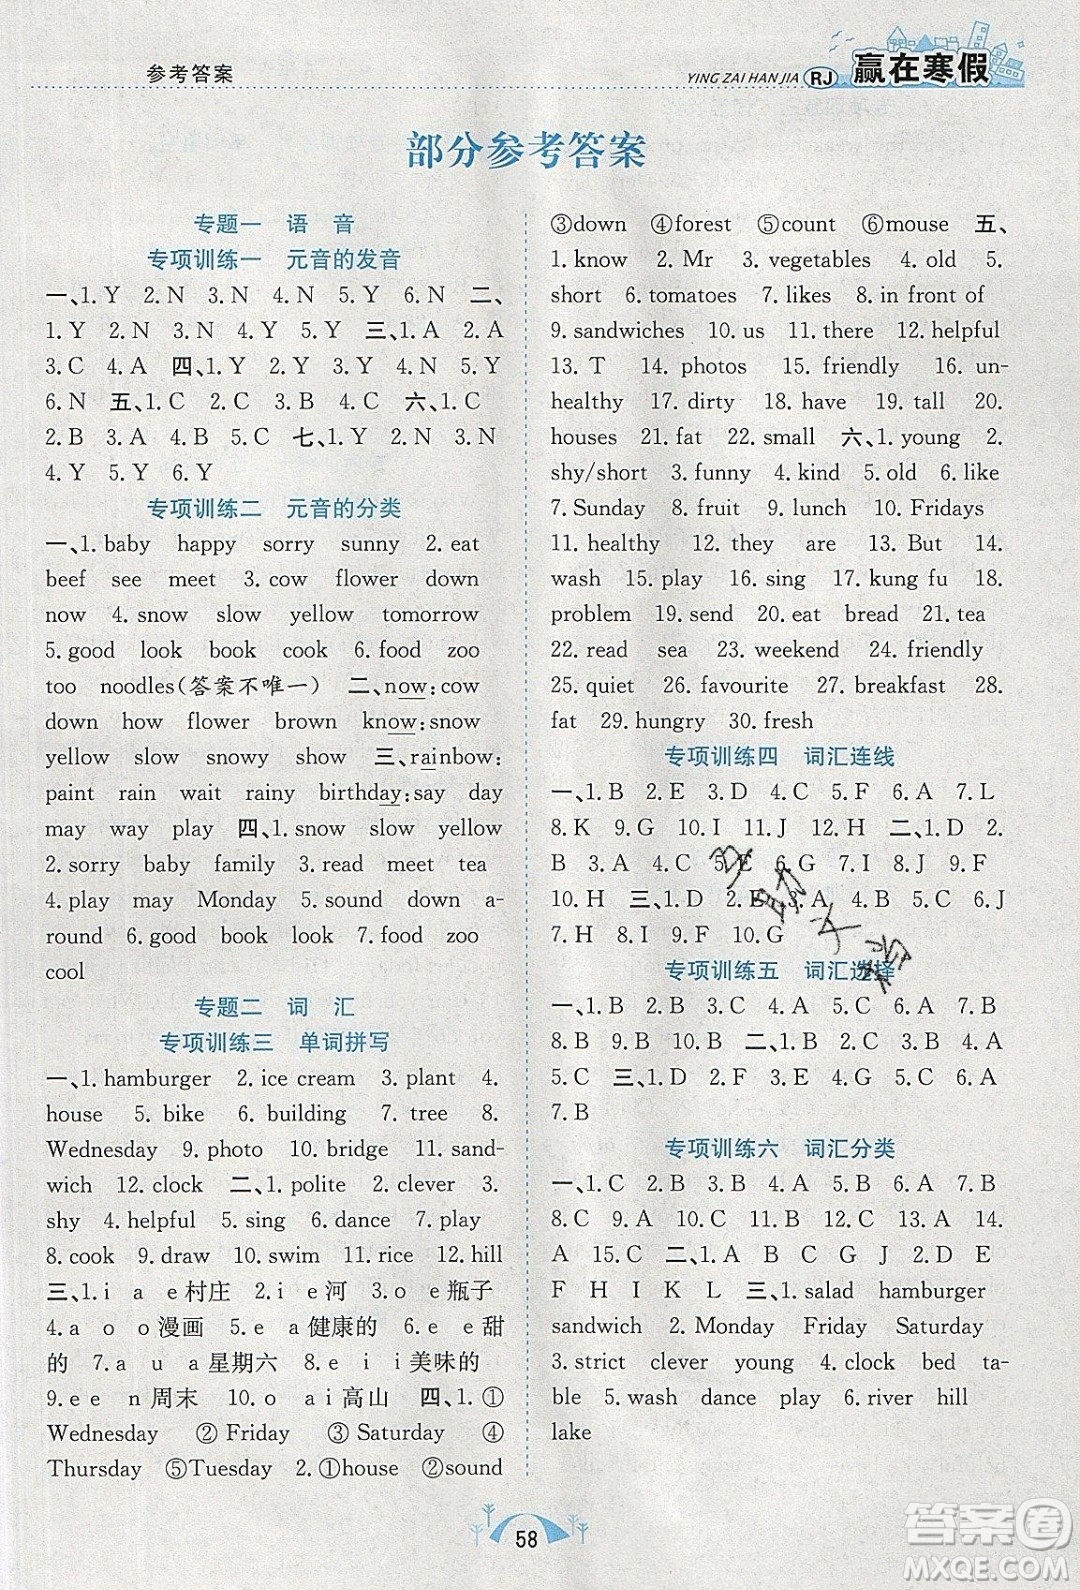 参考答案
YING ZAI HAN JIA RJ 赢在寒假
部分参考答案
专题一 语 音
专项训练一 元音的发音
一、1. Y 2. N 3. N 4. N 5. Y 6. N 二、
1. Y 2. N 3. N 4. Y 5. Y 三、1. A 2. A
3. C 4. A 四、1. Y 2. Y 3. Y 4. N 5. Y
6. N 五、1. C 2. C 3. B 4. C 六、1. C
2. B 3. A 4. B 5. C 七、1. Y 2. N 3. N
4. Y 5. Y 6. Y
专项训练二 元音的分类
一、1. baby happy sorry sunny 2. eat
beef see meet 3. cow flower down
now 4. snow slow yellow tomorrow
5. good look book cook 6. food zoo
too noodles(答案不唯一) 二、now:cow
down how flower brown know:snow
yellow slow snowy show 三、rainbow:
paint rain wait rainy birthday:say day
may way play 四、1. snow slow yellow
2. sorry baby family 3. read meet tea
4. play may Monday 5. sound down a-
round 6. good book look 7. food zoo
cool
专题二 词 汇
专项训练三 单词拼写
一、1. hamburger 2. ice cream 3. plant 4.
house 5. bike 6. building 7. tree 8.
Wednesday 9. photo 10. bridge 11. sand-
wich 12. clock 二、1. polite 2. clever 3.
shy 4. helpful 5. sing 6. dance 7. play
8. cook 9. draw 10. swim 11. rice 12. hill
三、1. i a e村庄 2. i e河 3. o e瓶子
4. a o o漫画 5. e a健康的 6. e e甜
的 7. a u a星期六 8. e i i美味的
9. e e n周末 10. o ai高山 四、1. ①
Wednesday ②Friday ③Saturday ④
Thursday ⑤Tuesday 2. ①house ②sound
③down ④forest ⑤count ⑥mouse 五、
1. know 2. Mr 3. vegetables 4. old 5.
short 6. tomatoes 7. likes 8. in front of
9. sandwiches 10. us 11. there 12. helpful
13. T 14. photos 15. friendly 16. un-
healthy 17. dirty 18. have 19. tall 20.
houses 21. fat 22. small 六、1. young 2.
shy/short 3. funny 4. kind 5. old 6. like
7. Sunday 8. fruit 9. lunch 10. Fridays
11. healthy 12. they are 13. But 14.
wash 15. play 16. sing 17. kung fu 18.
problem 19. send 20. eat bread 21. tea
22. read sea 23. weekend 24. friendly
25. quiet 26. favourite 27. breakfast 28.
fat 29. hungry 30. fresh
专项训练四 词汇连线
一、1. B 2. E 3. D 4. C 5. F 6. A 7. L
8. K 9. G 10. I 11. J 12. H 二、1. D 2.
B 3. A 4. C 5. E 6. G 7. I 8. J 9. F
10. H 三、1. D 2. E 3. A 4. B 5. C 6. J
7. H 8. I 9. F 10. G
专项训练五 词汇选择
一、1. B 2. B 3. C 4. A 5. C 6. A 7. B
8. B 9. C 10. A 二、1. C 2. B 3. B 4. A
5. C 三、1. B 2. B 3. A 4. C 5. C 6. A
7. B
专项训练六 词汇分类
一、1. C 2. B 3. A 4. B 5. A 6. A 7. B
8. C 9. C 10. B 11. A 12. B 13. A 14.
A 15. C 二、1. A B C G J 2. D E
F H I K L 三、1. salad hamburger
sandwich 2. Monday Friday Saturday
3. strict clever young 4. clock bed ta-
ble 5. wash dance play 6. river hill
lake
58
答案圈
MXQE.COM